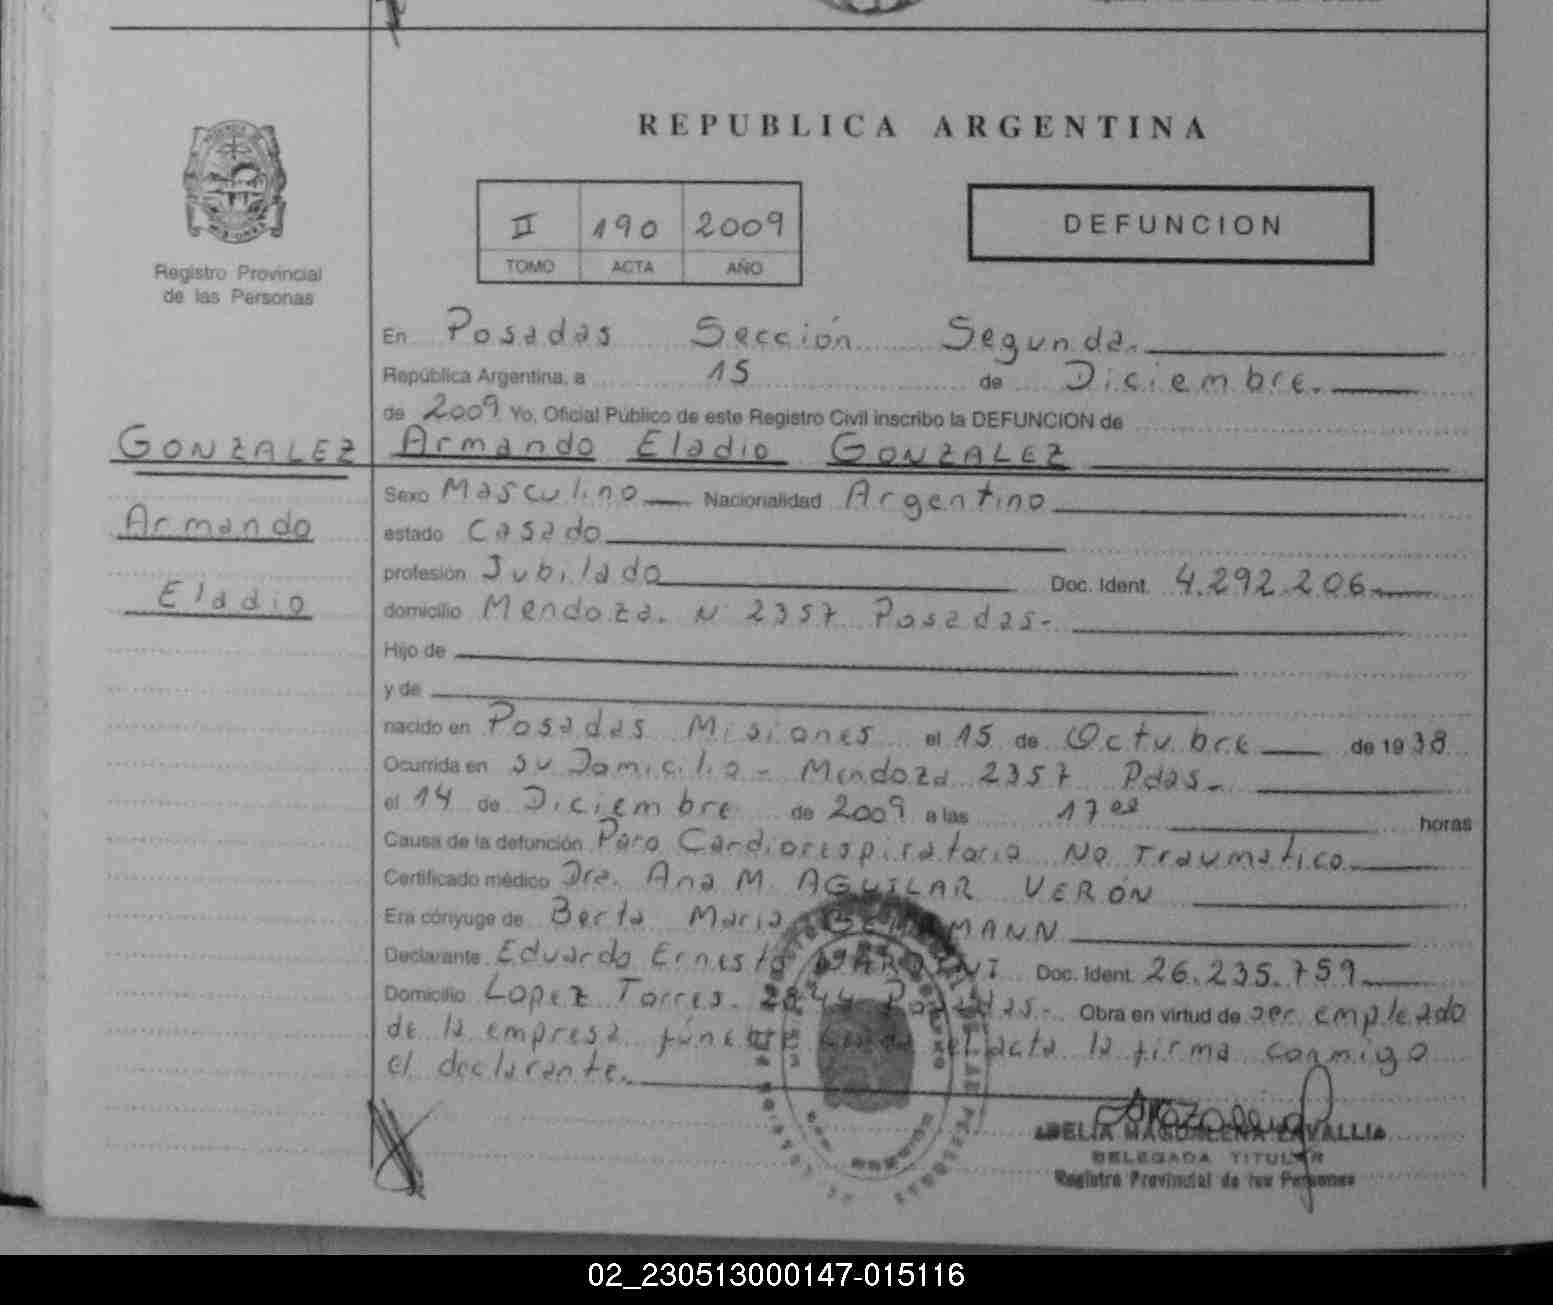 REPUBLICA ARGENTINA
II 190 2009
TOMO ACTA AÑO
DEFUNCION
Registro Provincial
de las Personas
En Posadas Sección Segunda.
República Argentina, a 15 de Diciembre.
de 2009 Yo, Oficial Público de este Registro Civil inscribo la DEFUNCION de
GONZALEZ
Armando
Eladio
Armando Eladio GONZALEZ
Sexo Masculino Nacionalidad Argentino
estado Casado
profesión Jubilado Doc. Ident. 4.292.206
domicilio Mendoza. N 2357 Posadas-
Hijo de
y de
nacido en Posadas Misiones el 15 de Octubre de 1938
Ocurrida en su Domicilio - Mendoza 2357 Pdas-
el 14 de Diciembre de 2009 a las 17 horas
Causa de la defunción Paro Cardiorespiratorio No Traumatico
Certificado médico Dra. Ana M. AGUILAR VERÓN
Era cónyuge de Berta Maria
Declarante Eduardo Ernesto Doc. Ident. 26.235.759
Domicilio Lopez Torres. Posadas- Obra en virtud de ser empleado
de la empresa el acta la firma conmigo
el declarante.
DELEGADA TITULAR
Registro Provincial de las Personas
02_230513000147-015116